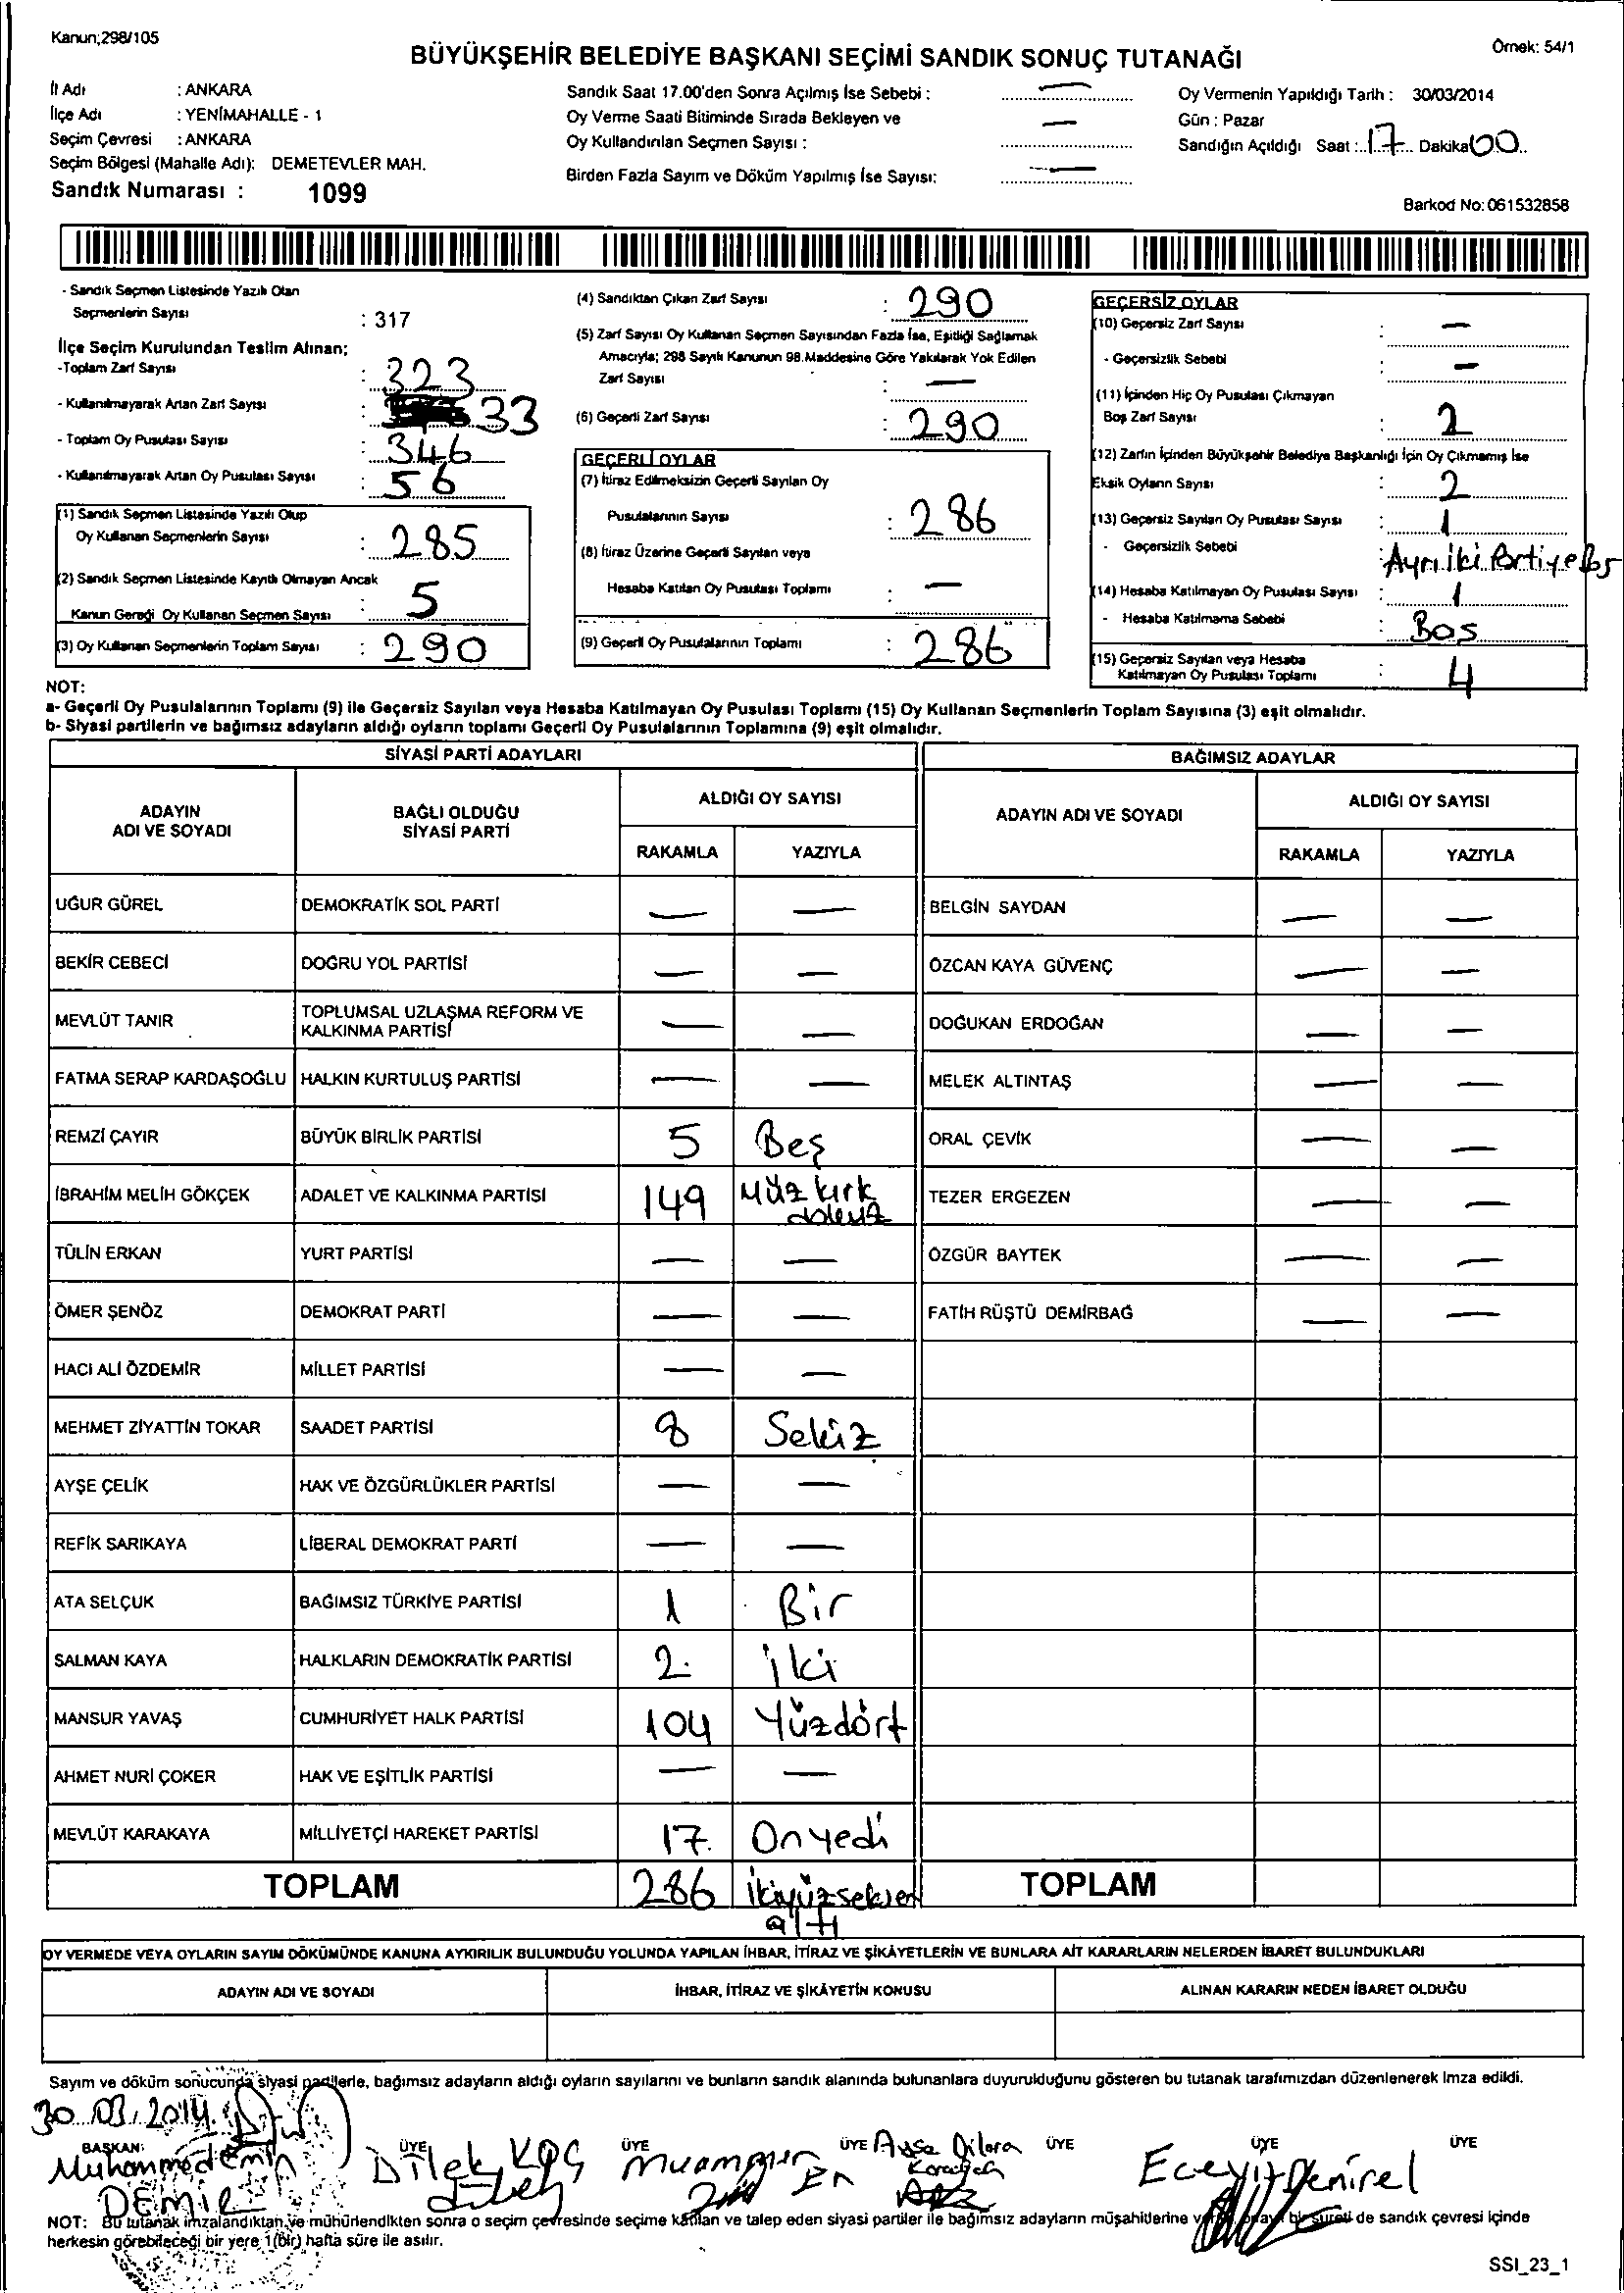 Kanun;298/105
Örnek: 54/1
BÜYÜKŞEHİR BELEDİYE BAŞKANI SEÇİMİ SANDIK SONUÇ TUTANAĞI
İl Adı : ANKARA
İlçe Adı : YENİMAHALLE - 1
Seçim Çevresi : ANKARA
Seçim Bölgesi (Mahalle Adı): DEMETEVLER MAH.
Sandık Numarası : 1099
Sandık Saat 17.00'den Sonra Açılmış İse Sebebi : —
Oy Verme Saati Bitiminde Sırada Bekleyen ve
Oy Kullandırılan Seçmen Sayısı : —
Birden Fazla Sayım ve Döküm Yapılmış İse Sayısı: —
Oy Vermenin Yapıldığı Tarih : 30/03/2014
Gün : Pazar
Sandığın Açıldığı Saat : 17 Dakika 00
Barkod No: 061532858
- Sandık Seçmen Listesinde Yazılı Olan
Seçmenlerin Sayısı : 317
İlçe Seçim Kurulundan Teslim Alınan;
-Toplam Zarf Sayısı : 323
- Kullanılmayarak Artan Zarf Sayısı : 33
- Toplam Oy Pusulası Sayısı : 346
- Kullanılmayarak Artan Oy Pusulası Sayısı : 56
(1) Sandık Seçmen Listesinde Yazılı Olup
Oy Kullanan Seçmenlerin Sayısı : 285
(2) Sandık Seçmen Listesinde Kayıtlı Olmayan Ancak
Kanun Gereği Oy Kullanan Seçmen Sayısı : 5
(3) Oy Kullanan Seçmenlerin Toplam Sayısı : 290
(4) Sandıktan Çıkan Zarf Sayısı : 290
(5) Zarf Sayısı Oy Kullanan Seçmen Sayısından Fazla İse, Eşitliği Sağlamak
Amacıyla; 298 Sayılı Kanunun 98.Maddesine Göre Yakılarak Yok Edilen
Zarf Sayısı : —
(6) Geçerli Zarf Sayısı : 290
GEÇERLİ OYLAR
(7) İtiraz Edilmeksizin Geçerli Sayılan Oy
Pusulalarının Sayısı : 286
(8) İtiraz Üzerine Geçerli Sayılan veya
Hesaba Katılan Oy Pusulası Toplamı : —
(9) Geçerli Oy Pusulalarının Toplamı : 286
GEÇERSİZ OYLAR
(10) Geçersiz Zarf Sayısı : —
- Geçersizlik Sebebi : —
(11) İçinden Hiç Oy Pusulası Çıkmayan
Boş Zarf Sayısı : 2
(12) Zarfın İçinden Büyükşehir Belediye Başkanlığı İçin Oy Çıkmamış İse
Eksik Oyların Sayısı : 2
(13) Geçersiz Sayılan Oy Pusulası Sayısı : 1
- Geçersizlik Sebebi : Ayrı iki Partiye
(14) Hesaba Katılmayan Oy Pusulası Sayısı : 1
- Hesaba Katılmama Sebebi : Bos
(15) Geçersiz Sayılan veya Hesaba
Katılmayan Oy Pusulası Toplamı : 4
NOT:
a- Geçerli Oy Pusulalarının Toplamı (9) ile Geçersiz Sayılan veya Hesaba Katılmayan Oy Pusulası Toplamı (15) Oy Kullanan Seçmenlerin Toplam Sayısına (3) eşit olmalıdır.
b- Siyasi partilerin ve bağımsız adayların aldığı oyların toplamı Geçerli Oy Pusulalarının Toplamına (9) eşit olmalıdır.
SİYASİ PARTİ ADAYLARI BAĞIMSIZ ADAYLAR
ADAYIN ADI VE SOYADI BAĞLI OLDUĞU SİYASİ PARTİ ALDIĞI OY SAYISI ADAYIN ADI VE SOYADI ALDIĞI OY SAYISI
RAKAMLA YAZIYLA RAKAMLA YAZIYLA
UĞUR GÜREL DEMOKRATİK SOL PARTİ — — BELGİN SAYDAN — —
BEKİR CEBECİ DOĞRU YOL PARTİSİ — — ÖZCAN KAYA GÜVENÇ — —
MEVLÜT TANIR TOPLUMSAL UZLAŞMA REFORM VE KALKINMA PARTİSİ — — DOĞUKAN ERDOĞAN — —
FATMA SERAP KARDAŞOĞLU HALKIN KURTULUŞ PARTİSİ — — MELEK ALTINTAŞ — —
REMZİ ÇAYIR BÜYÜK BİRLİK PARTİSİ 5 Beş ORAL ÇEVİK — —
İBRAHİM MELİH GÖKÇEK ADALET VE KALKINMA PARTİSİ 149 Yüz kırk dokuz TEZER ERGEZEN — —
TÜLİN ERKAN YURT PARTİSİ — — ÖZGÜR BAYTEK — —
ÖMER ŞENÖZ DEMOKRAT PARTİ — — FATİH RÜŞTÜ DEMİRBAĞ — —
HACI ALİ ÖZDEMİR MİLLET PARTİSİ — —
MEHMET ZİYATTİN TOKAR SAADET PARTİSİ 8 Sekiz
AYŞE ÇELİK HAK VE ÖZGÜRLÜKLER PARTİSİ — —
REFİK SARIKAYA LİBERAL DEMOKRAT PARTİ — —
ATA SELÇUK BAĞIMSIZ TÜRKİYE PARTİSİ 1 Bir
SALMAN KAYA HALKLARIN DEMOKRATİK PARTİSİ 2 iki
MANSUR YAVAŞ CUMHURİYET HALK PARTİSİ 104 Yüzdört
AHMET NURİ ÇOKER HAK VE EŞİTLİK PARTİSİ — —
MEVLÜT KARAKAYA MİLLİYETÇİ HAREKET PARTİSİ 17. Onyedi
TOPLAM 286 ikiyüzseksen altı TOPLAM
OY VERMEDE VEYA OYLARIN SAYIM DÖKÜMÜNDE KANUNA AYKIRILIK BULUNDUĞU YOLUNDA YAPILAN İHBAR, İTİRAZ VE ŞİKÂYETLERİN VE BUNLARA AİT KARARLARIN NELERDEN İBARET BULUNDUKLARI
ADAYIN ADI VE SOYADI İHBAR, İTİRAZ VE ŞİKÂYETİN KONUSU ALINAN KARARIN NEDEN İBARET OLDUĞU
Sayım ve döküm sonucunda siyasi partilerle, bağımsız adayların aldığı oyların sayılarını ve bunların sandık alanında bulunanlara duyurulduğunu gösteren bu tutanak tarafımızdan düzenlenerek imza edildi.
30.03.2014
BAŞKAN: ÜYE ÜYE ÜYE ÜYE ÜYE ÜYE
Muhammed Emin DEMİR Dilek KOÇ Muammer Er Ayşe Dilara Ecevit Demirel
NOT: Bu tutanak imzalandıktan ve mühürlendikten sonra o seçim çevresinde seçime katılan ve talep eden siyasi partiler ile bağımsız adayların müşahitlerine bir sureti de sandık çevresi içinde
herkesin görebileceği bir yere 1(bir) hafta süre ile asılır.
SSI_23_1